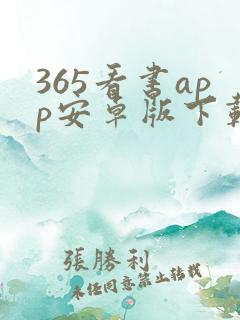 365看書ap
p安卓版下載
張勝利
未经同意禁止转载